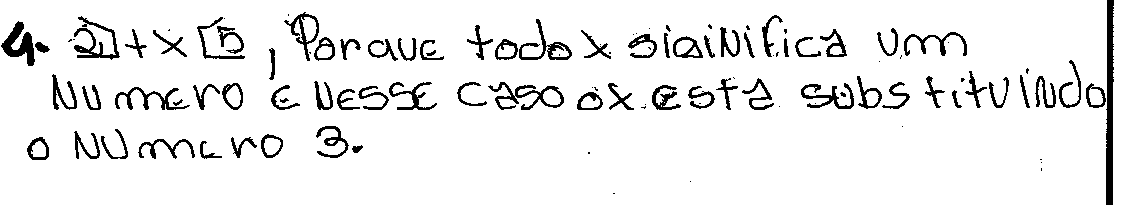 4. 2+x 5, Porque todo x siginifica um
Numero e Nesse caso o x está substituindo
o Numero 3.